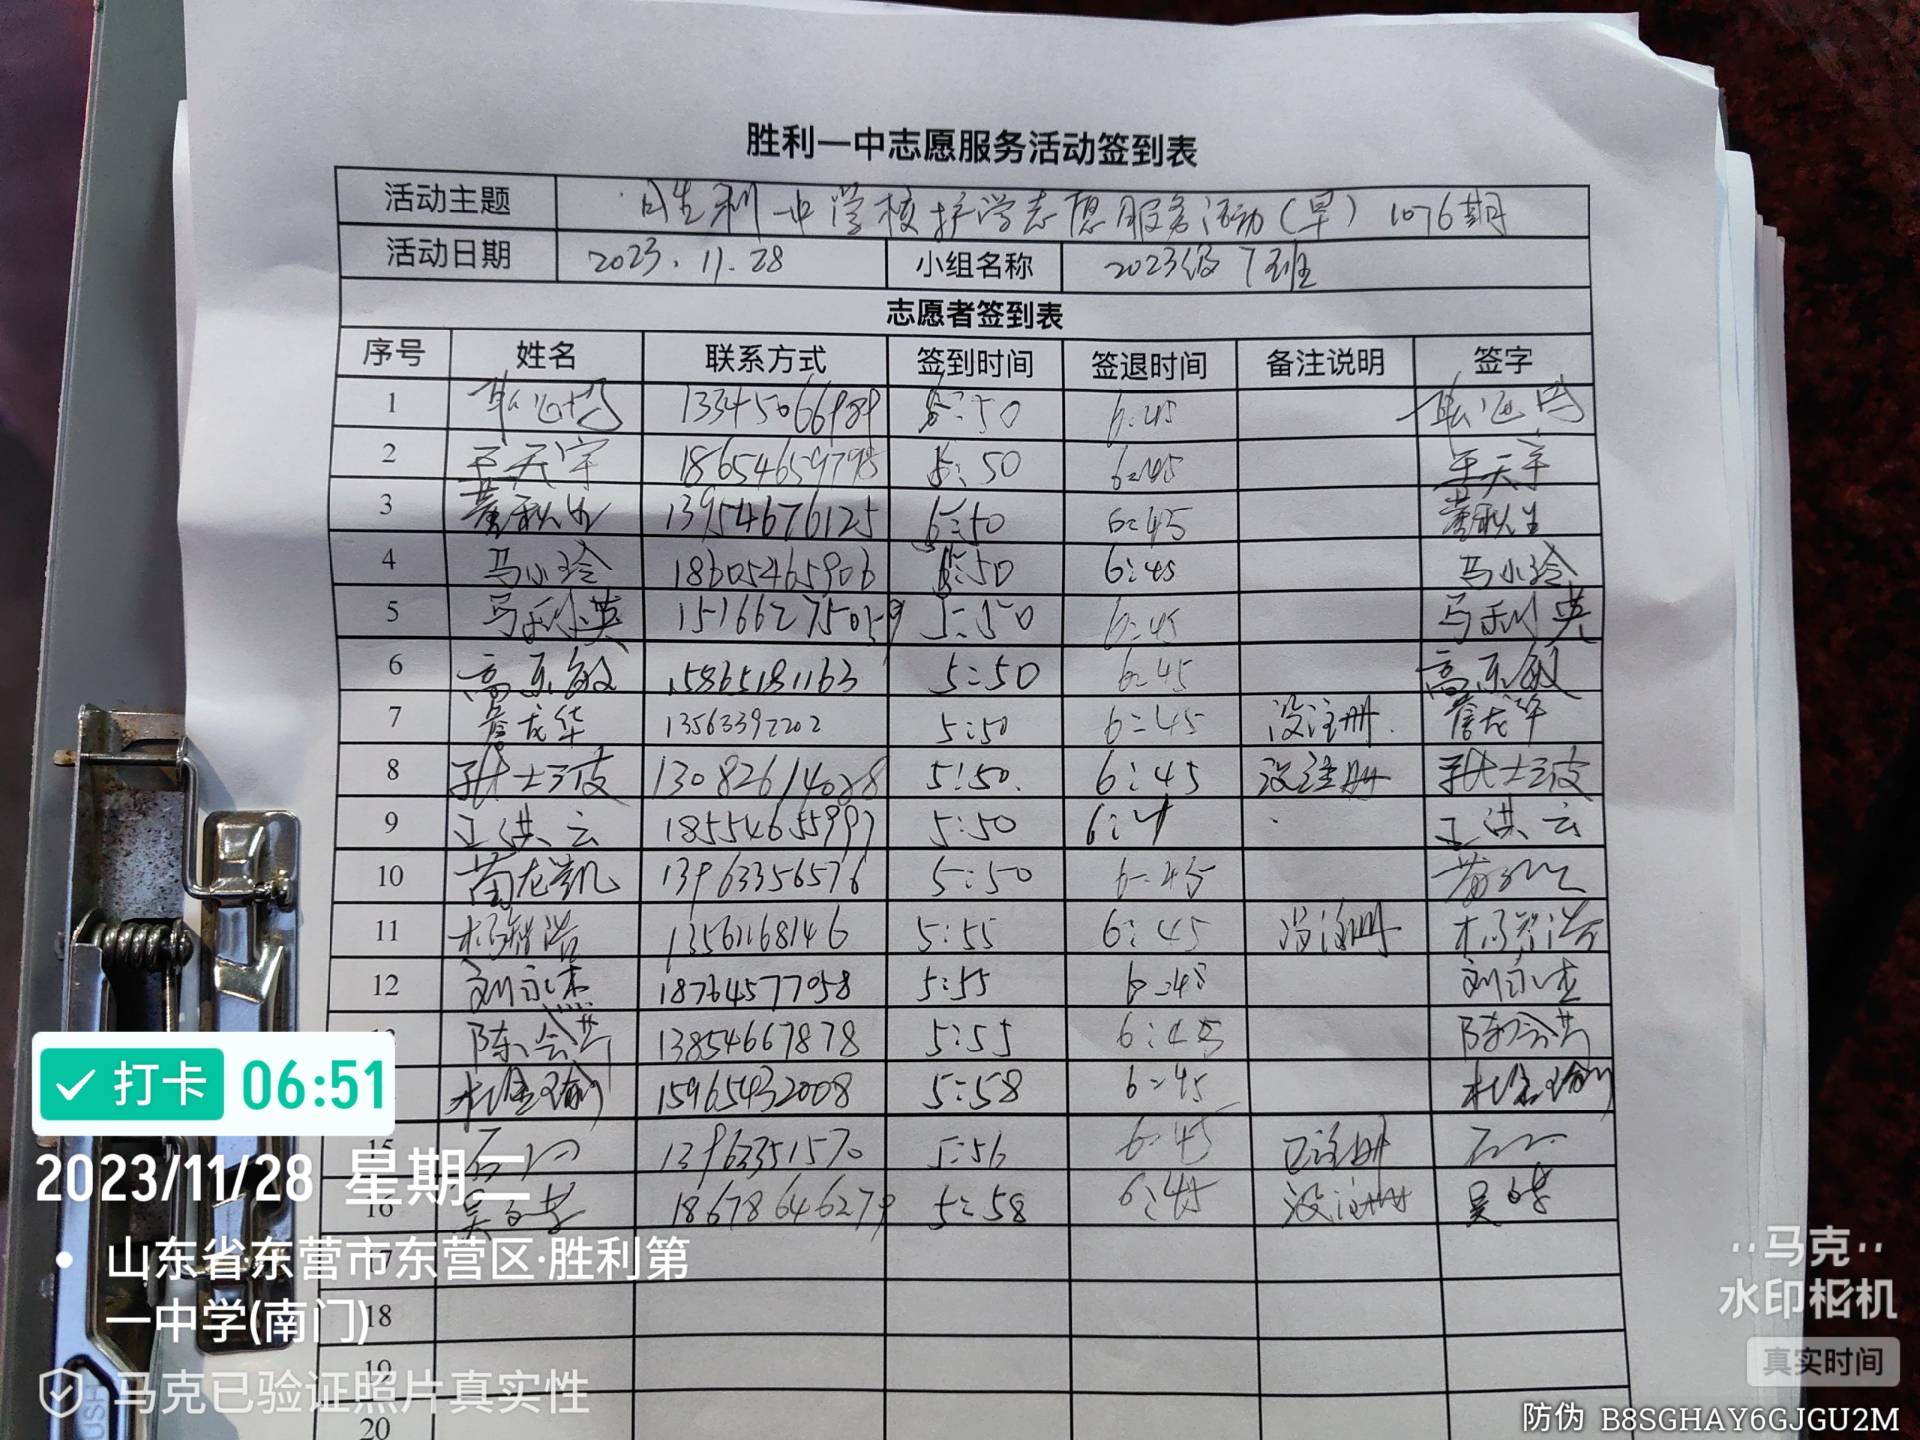 胜利一中志愿服务活动签到表
活动主题 胜利一中学校护学志愿服务活动(早) 1076期
活动日期 2023.11.28 小组名称 2023级7班
志愿者签到表
序号 姓名 联系方式 签到时间 签退时间 备注说明 签字
1 5:50 6:45
2 王天宇 18654659798 5:50 6:45 王天宇
3 13954676125 5:50 6:45
4 马小玲 18605465906 5:50 6:45 马小玲
5 马利英 5:50 6:45 马利英
6 高乐敏 15865181163 5:50 6:45 高乐敏
7 詹龙华 13563397202 5:50 6:45 没注册 詹龙华
8 张士波 5:50 6:45 没注册 张士波
9 王洪云 18554655997 5:50 王洪云
10 苗龙凯 13963356576 5:50 6:45
11 杨智浩 13561168146 5:55 6:45 没注册 杨智浩
12 刘永杰 18764577058 5:55 6:45 刘永杰
陈会 13854667878 5:55 6:45 陈会
杜金瑜 15965432008 5:58 6:45 杜金瑜
15 13963351570 5:56 6:45 已注册
16 18678646279 5:58 6:45 没注册
17
18
19
20
打卡 06:51
2023/11/28 星期二
山东省东营市东营区·胜利第
一中学(南门)
马克已验证照片真实性
马克
水印相机
真实时间
防伪 B8SGHAY6GJGU2M